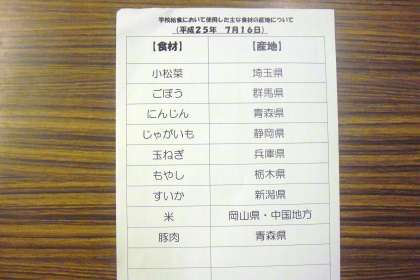 学校給食において使用した主な食材の産地について
(平成25年 7月16日)
【食材】 【産地】
小松菜 埼玉県
ごぼう 群馬県
にんじん 青森県
じゃがいも 静岡県
玉ねぎ 兵庫県
もやし 栃木県
すいか 新潟県
米 岡山県・中国地方
豚肉 青森県